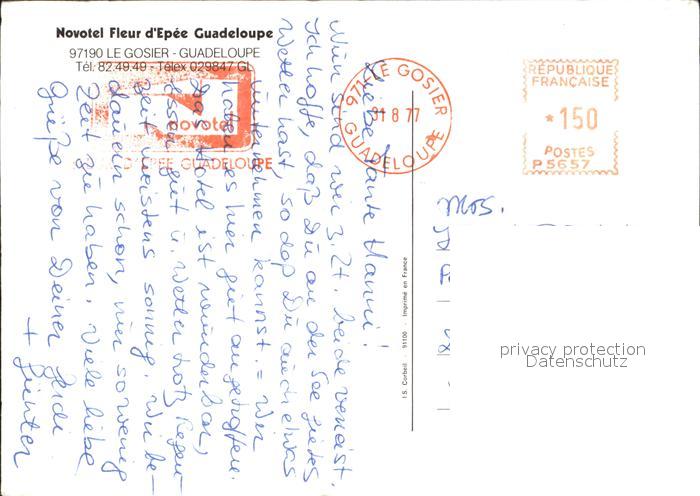 Novotel Fleur d'Epée Guadeloupe
97190 LE GOSIER - GUADELOUPE
Tél. 82.49.49 - Télex 029847 GL
novotel
D'EPÉE GUADELOUPE
971-LE GOSIER
31 8 77
GUADELOUPE
RÉPUBLIQUE
FRANÇAISE
*150
POSTES
P5657
Liebe Tante Hanni!
Nun sind wir 3. Zt. beide verreist.
Ich hoffe, daß Du an der See gutes
Wetter hast, so daß Du auch etwas
unternehmen kannst. = Wir
haben es hier gut angetroffen.
Das Hotel ist wunderbar,
Essen gut u. Wetter trotz Regen-
zeit meistens sonnig. Wir be-
dauern schon, nur so wenig
Zeit zu haben. Viele liebe
Grüße von Deiner
+ Günter
Mrs.
I.S. Corbeil 91100 Imprimé en France
privacy protection
Datenschutz